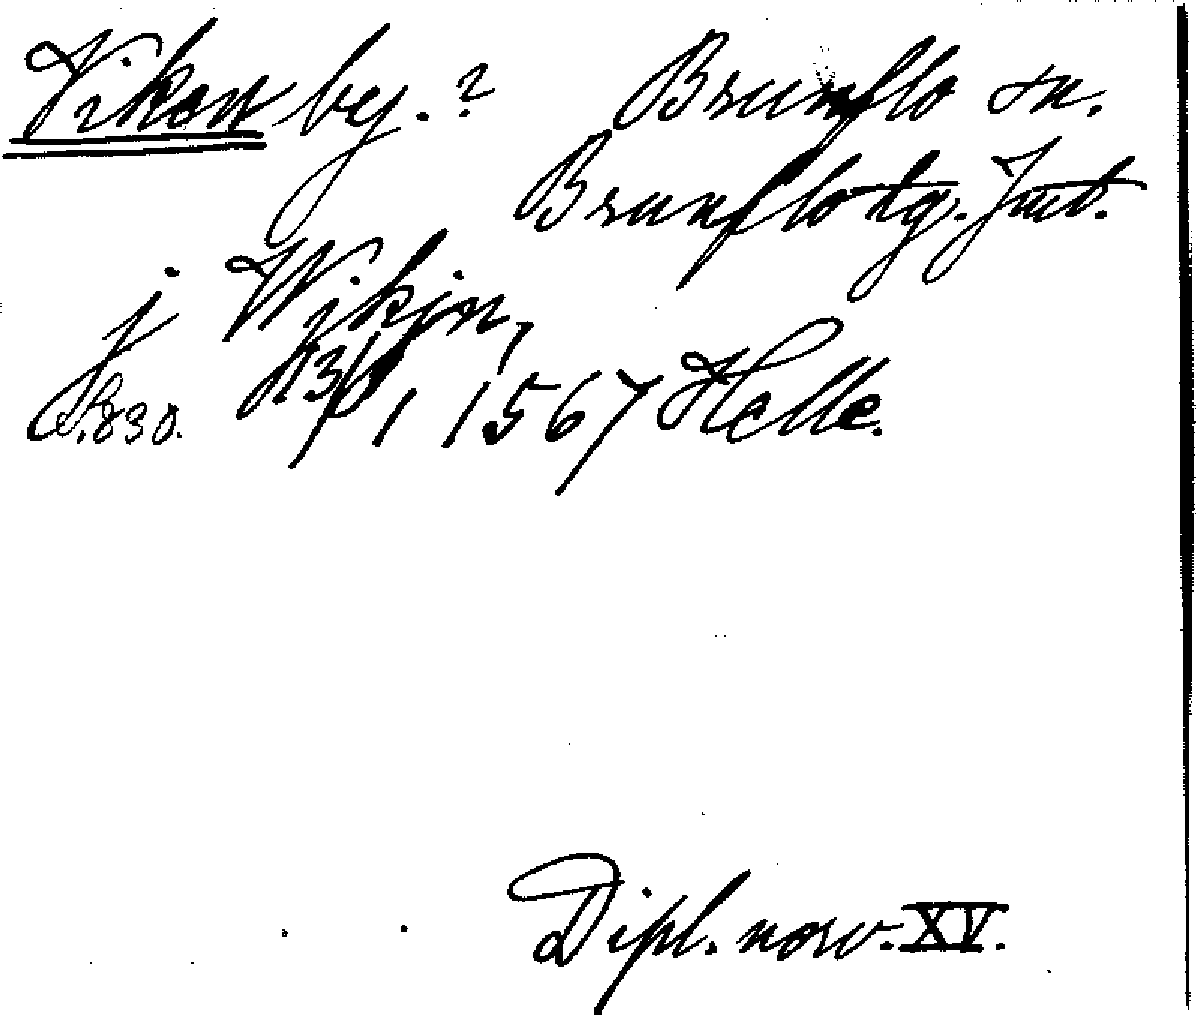 Vikən by.? Brunflo sn.
Brunflo tg. Jmt.
j Wikjn,
S. 830. 13/1 1567 Helle.
Dipl. norv. XV.